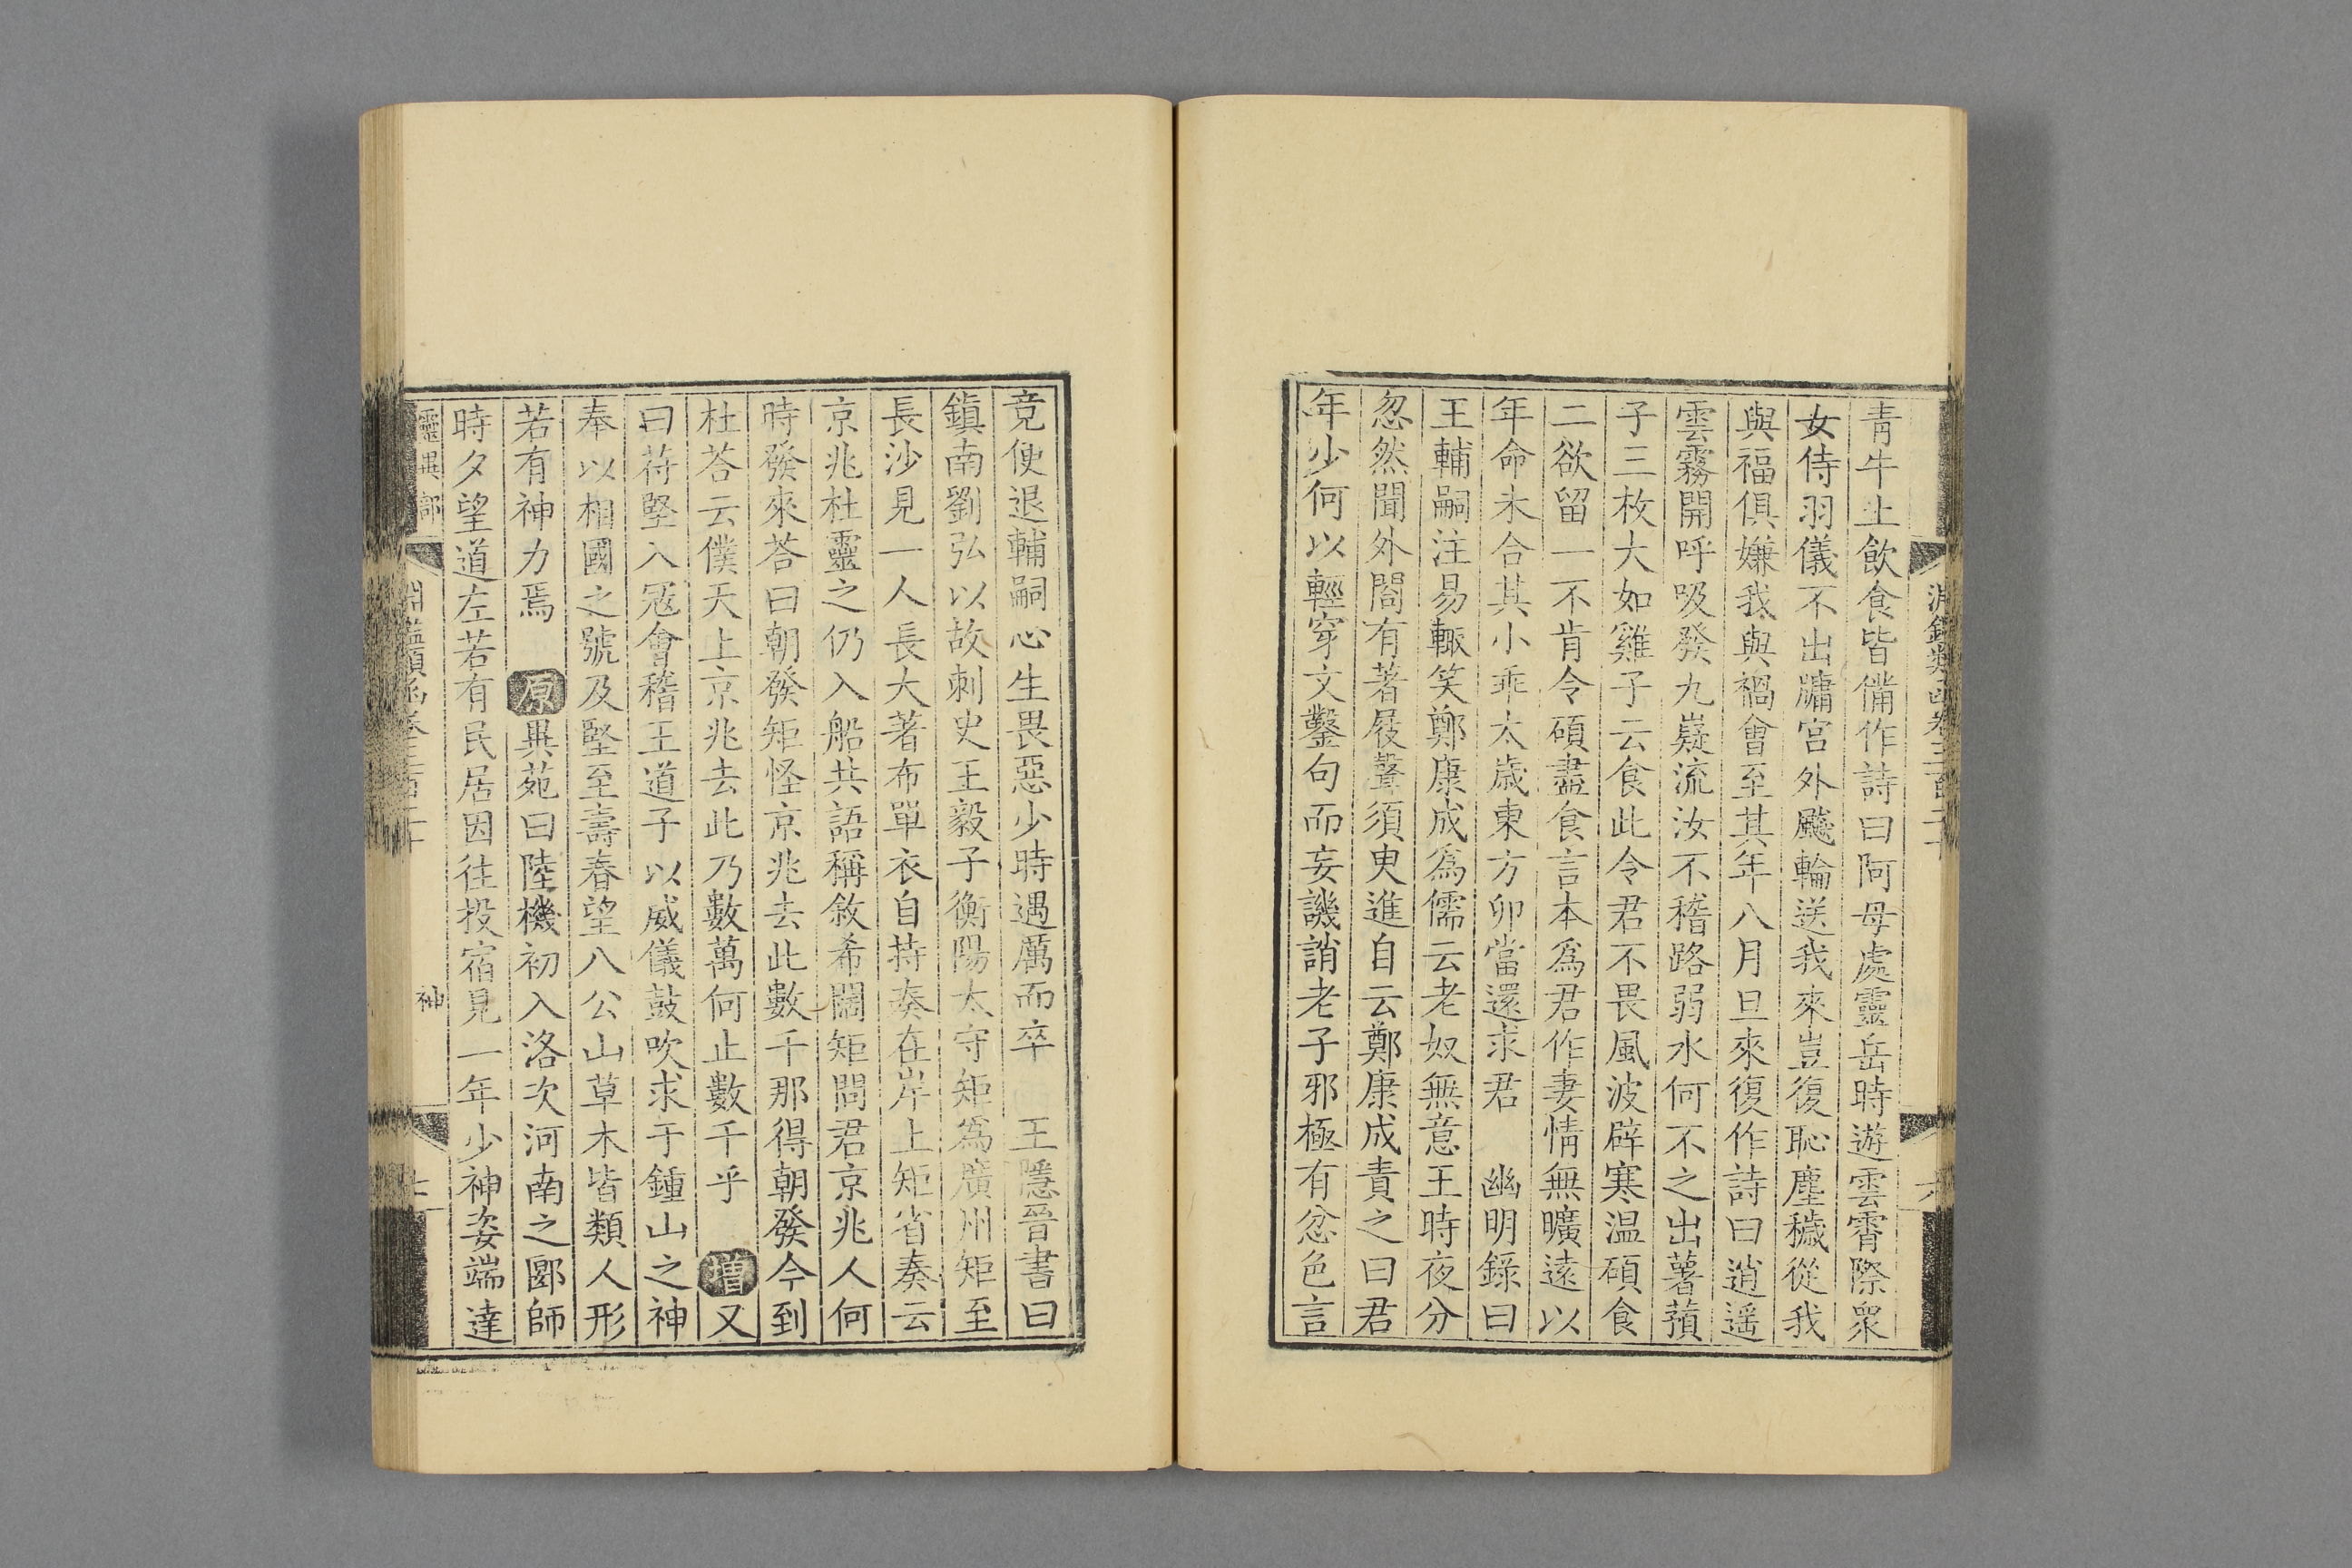 青牛上飲食皆備作詩曰阿母處靈岳時遊雲霄際衆
女侍羽儀不出墉宮外飈輪送我來豈復恥塵穢從我
與福俱嫌我與禍會至其年八月旦來復作詩曰逍遥
雲霧開呼吸發九嶷流汝不稽路弱水何不之出薯蕷
子三枚大如雞子云食此令君不畏風波辟寒温碩食
二欲留一不肯令碩盡食言本爲君作妻情無曠遠以
年命未合其小乖太歲東方卯當還求君　幽明錄曰
王輔嗣注易輒笑鄭康成爲儒云老奴無意王時夜分
忽然聞外閤有著屐聲須臾進自云鄭康成責之曰君
年少何以輕穿文鑿句而妄譏誚老子邪極有忿色言
竟便退輔嗣心生畏惡少時遇厲而卒　王隱晉書曰
鎮南劉弘以故刺史王毅子衡陽太守矩爲廣州矩至
長沙見一人長大著布單衣自持奏在岸上矩省奏云
京兆杜靈之仍入船共語稱敘希闊矩問君京兆人何
時發來荅曰朝發矩怪京兆去此數千那得朝發今到
杜荅云僕天上京兆去此乃數萬何止數千乎　增又
曰苻堅入冦會稽王道子以威儀鼓吹求于鍾山之神
奉以相國之號及堅至壽春望八公山草木皆類人形
若有神力焉　原異苑曰陸機初入洛次河南之郾師
時夕望道左若有民居因往投宿見一年少神姿端達
靈異部
神